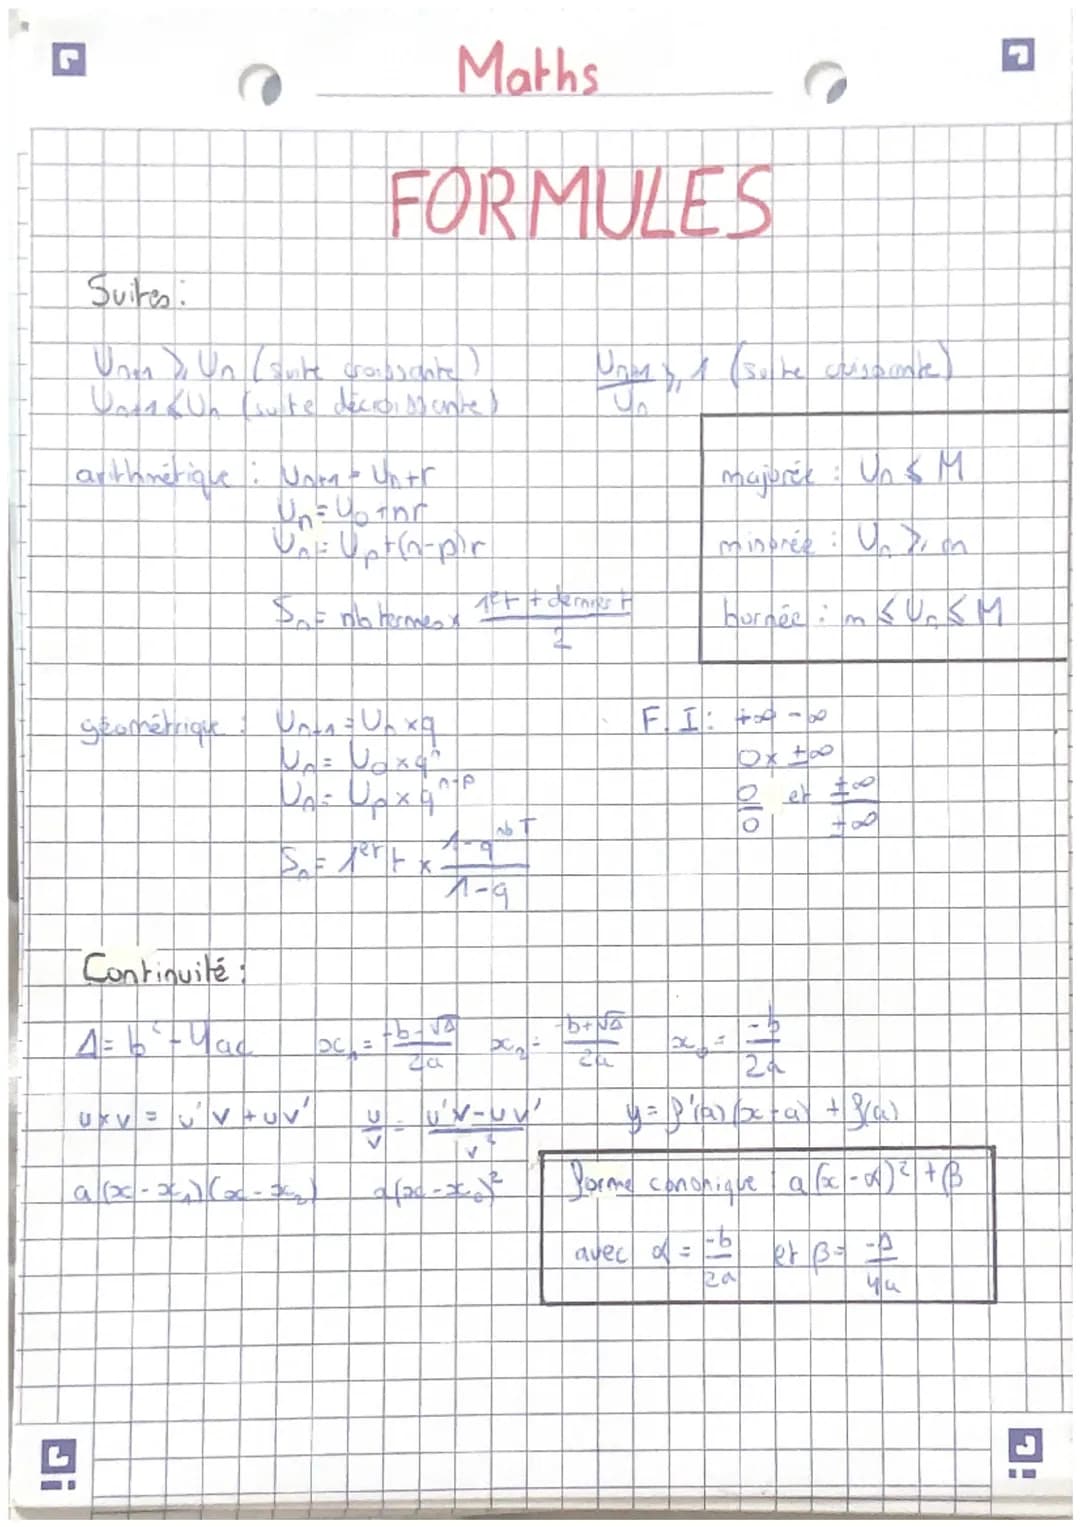 Maths
FORMULES
Suites :
Un+1 ⩾ Un (suite croissante)
Un+1 ⩽ Un (suite décroissante)
Un+1/Un ⩾ 1 (suite croissante)
arithmétique : Un+1 = Un+r
Un = U0+nr
Un = Up+(n-p)r
Sn = nb termes × (1er t + dernier t)/2
majorée : Un ⩽ M
minorée : Un ⩾ m
bornée : m ⩽ Un ⩽ M
géométrique : Un+1 = Un × q
Un = U0 × q^n
Un = Up × q^(n-p)
Sn = 1er t × (1-q^(nb T))/(1-q)
F.I : +∞ -∞
0× ±∞
0/0 et ±∞/±∞
Continuité :
Δ = b² - 4ac x1 = (-b-√Δ)/2a x2 = (-b+√Δ)/2a x0 = -b/2a
u×v = u'v + uv' u/v = (u'v-uv')/v² y = f'(a)(x-a) + f(a)
a(x-x1)(x-x2) a(x-x0)²
forme canonique : a(x-α)² + β
avec α = -b/2a et β = -Δ/4a